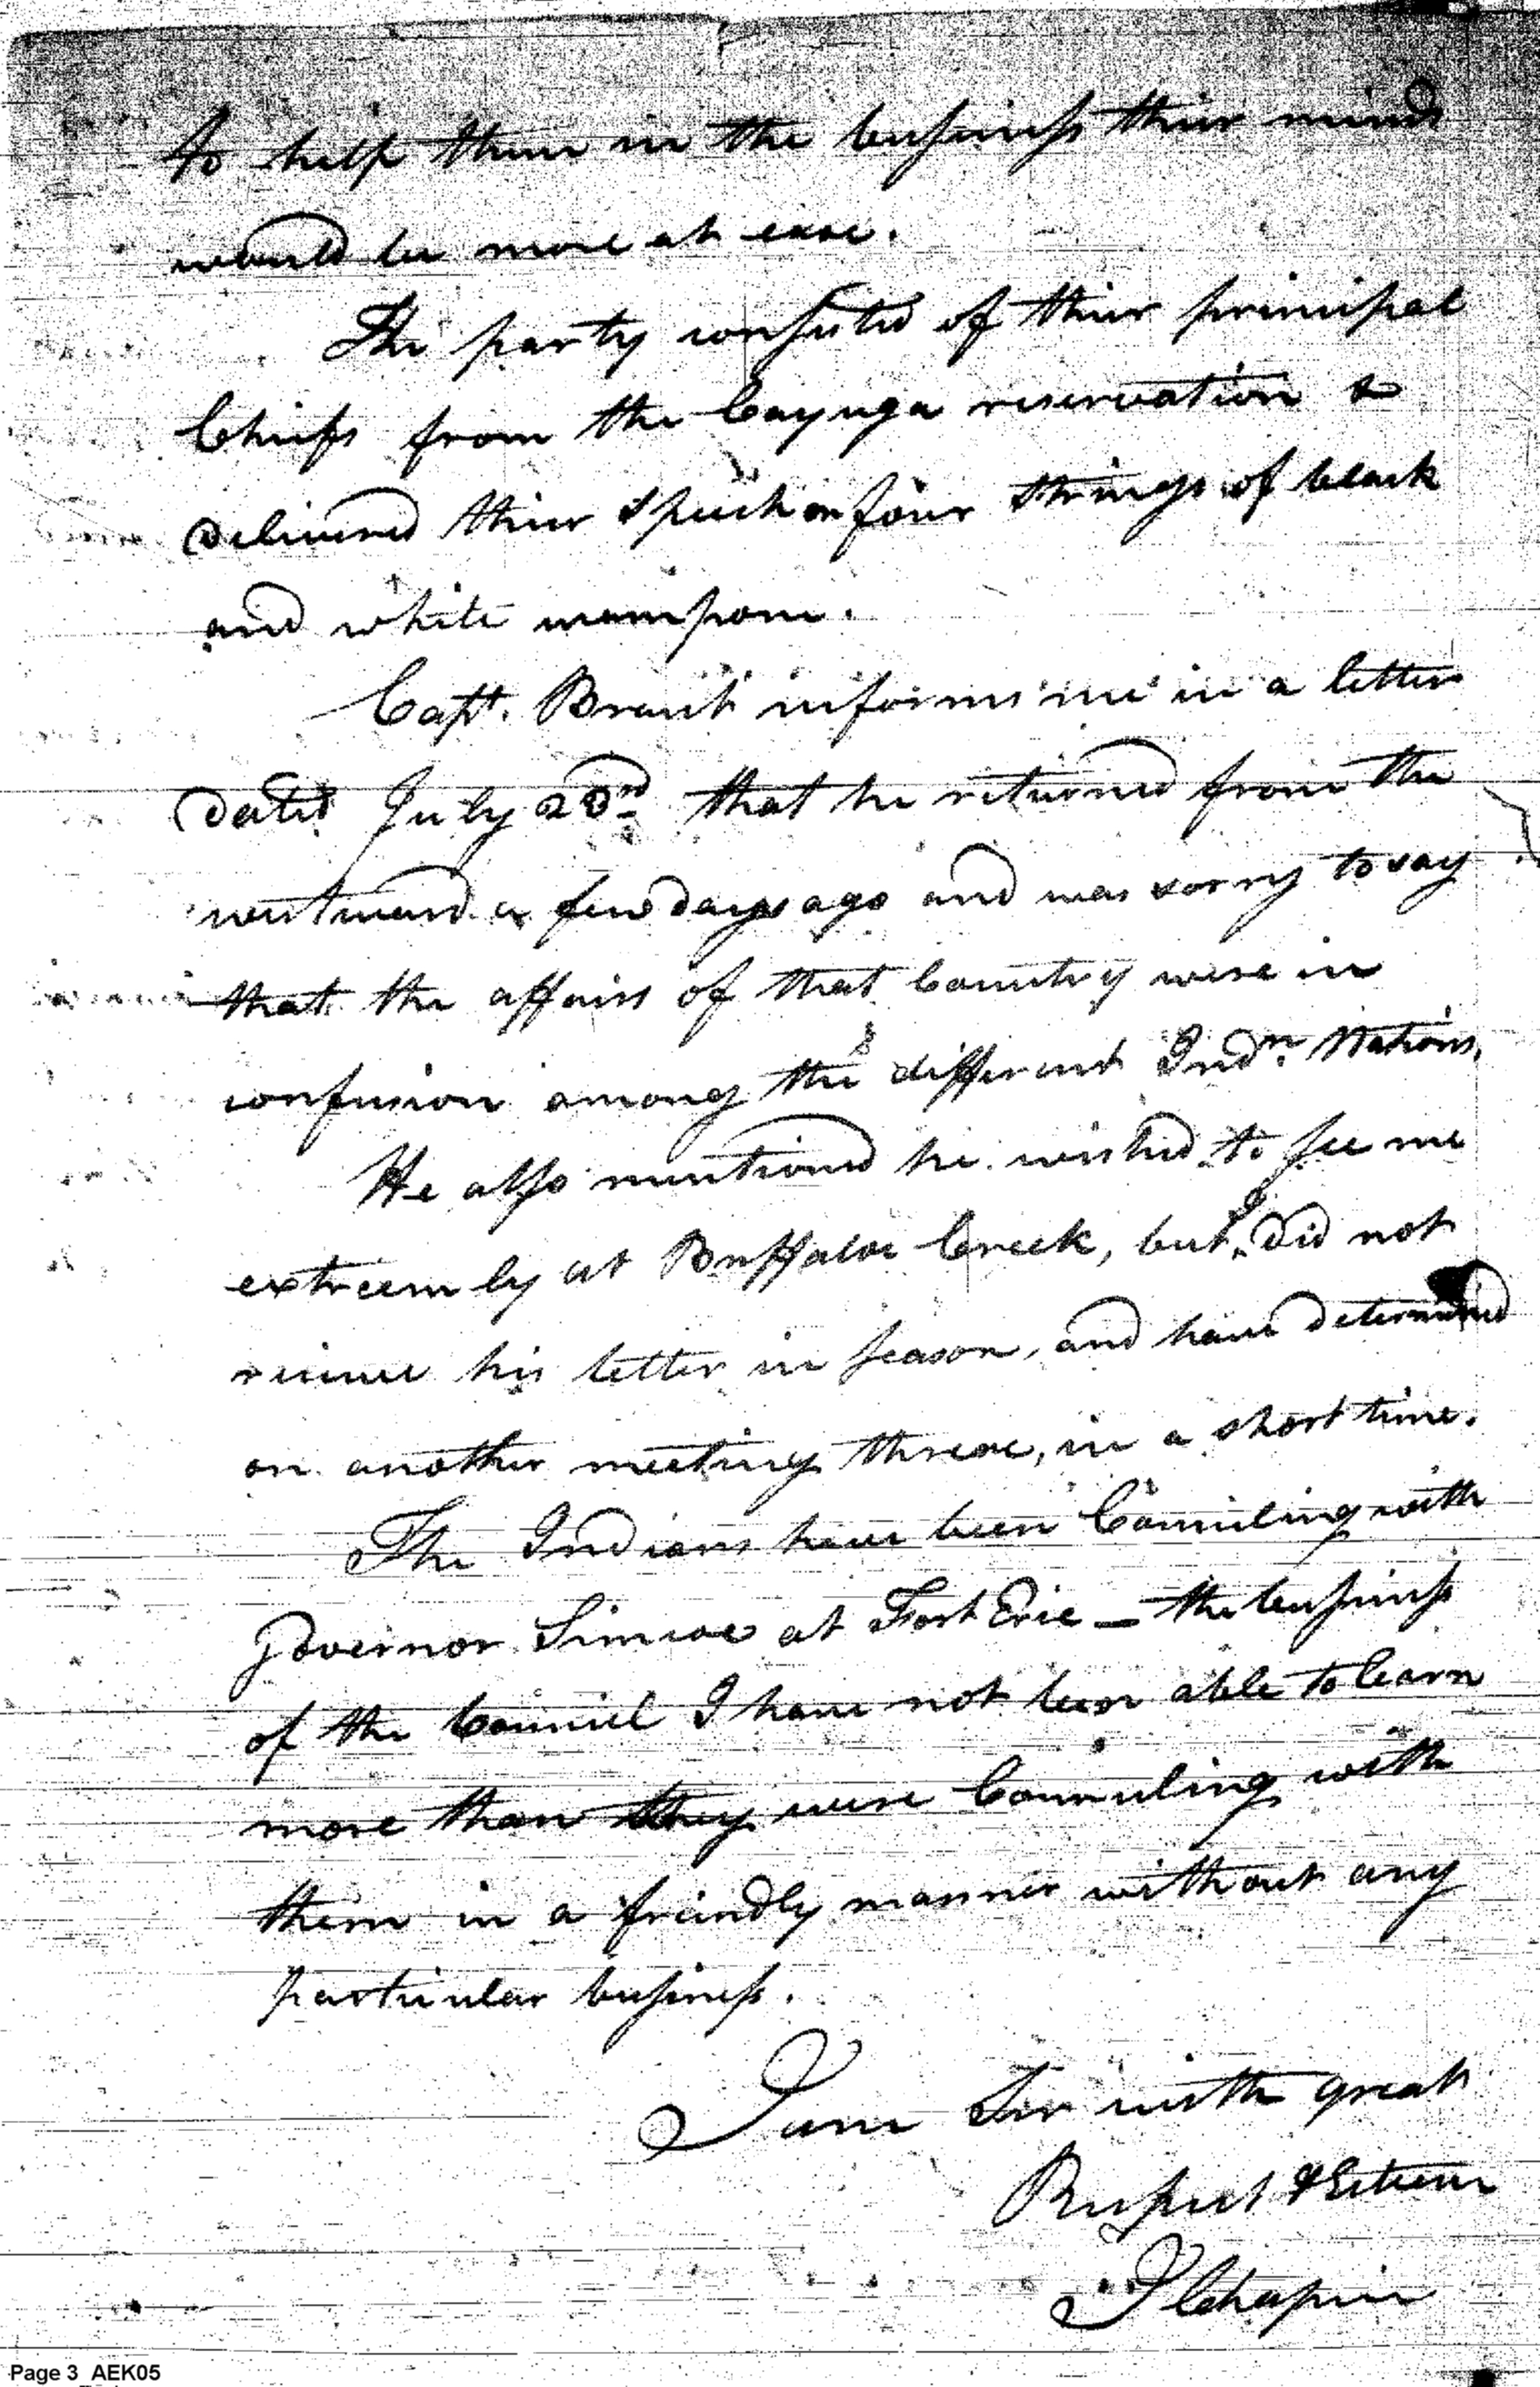 to help them in the business thier minds
would be more at ease.
The party consisted of thier principal
Chiefs from the Cayuga reservation &
delivered thier Speech on four strings of black
and white wampom.
Capt. Brant informs me in a letter
dated July 23rd that he returned from the
westward a few days ago and was sorry to say
that the affairs of that Country were in
confusion among the different Indn. Nations.
He also mentioned he wished to see me
extreemly at Buffaloe Creek, but I did not
recieve his letter in season, and have determined
on another meeting threre, in a short time.
The Indians have been Counciling with
Governor Simcoe at Fort Erie — the business
of the Council I have not been able to learn
more than they were Counciling with
them in a freindly manner without any
particular business.
I am Sir with great
Respect & Esteem
I Chapin
Page 3 AEK05